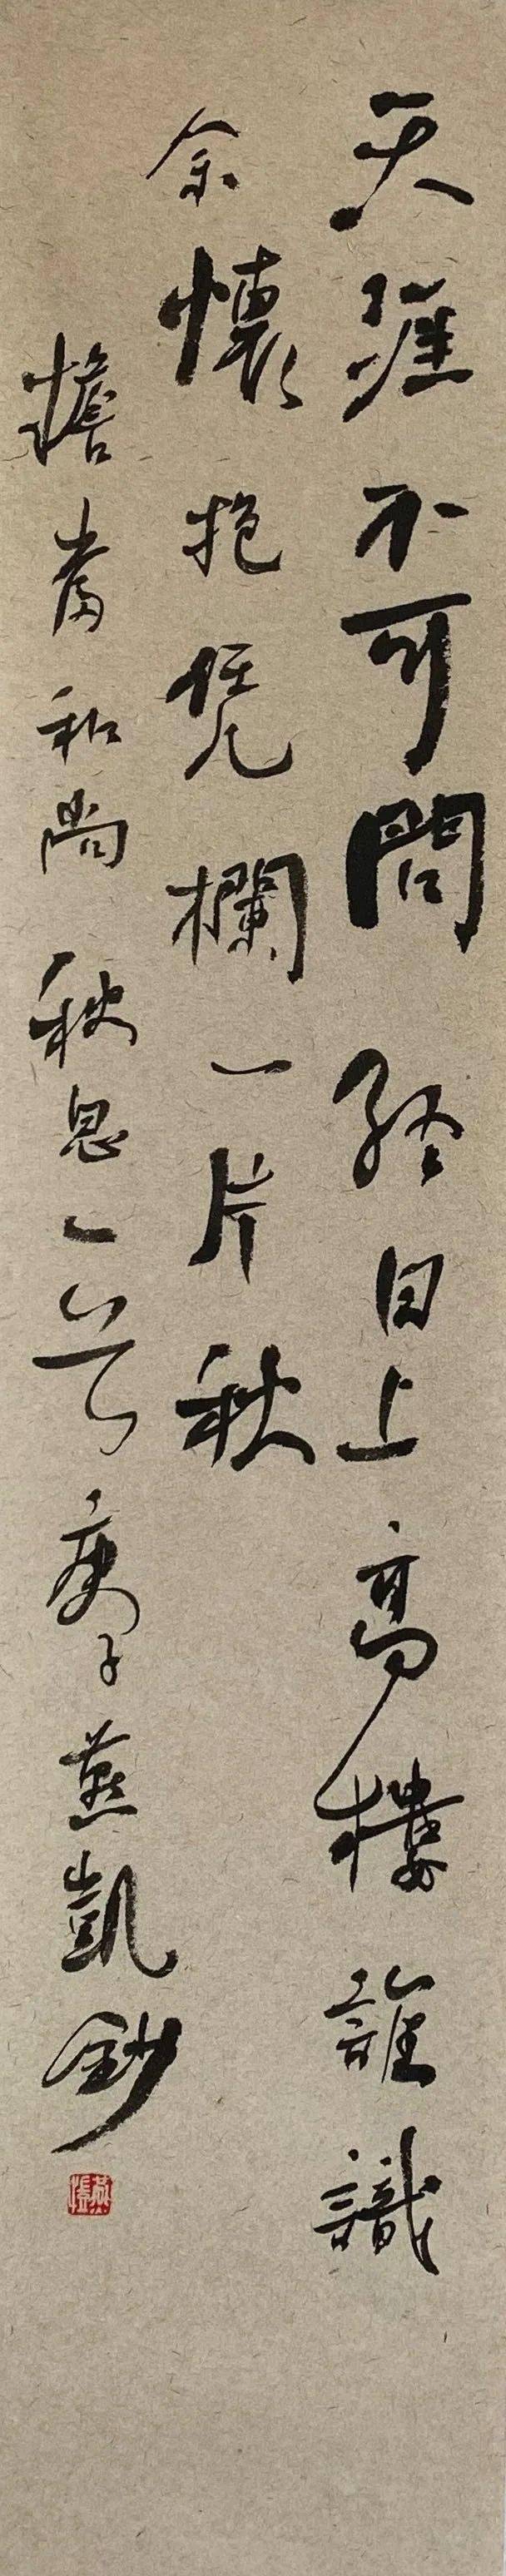 天涯不可問終日上高樓誰識
余懷抱凭欄一片秋
擔當和尚秋思一首庚子燕凱鈔